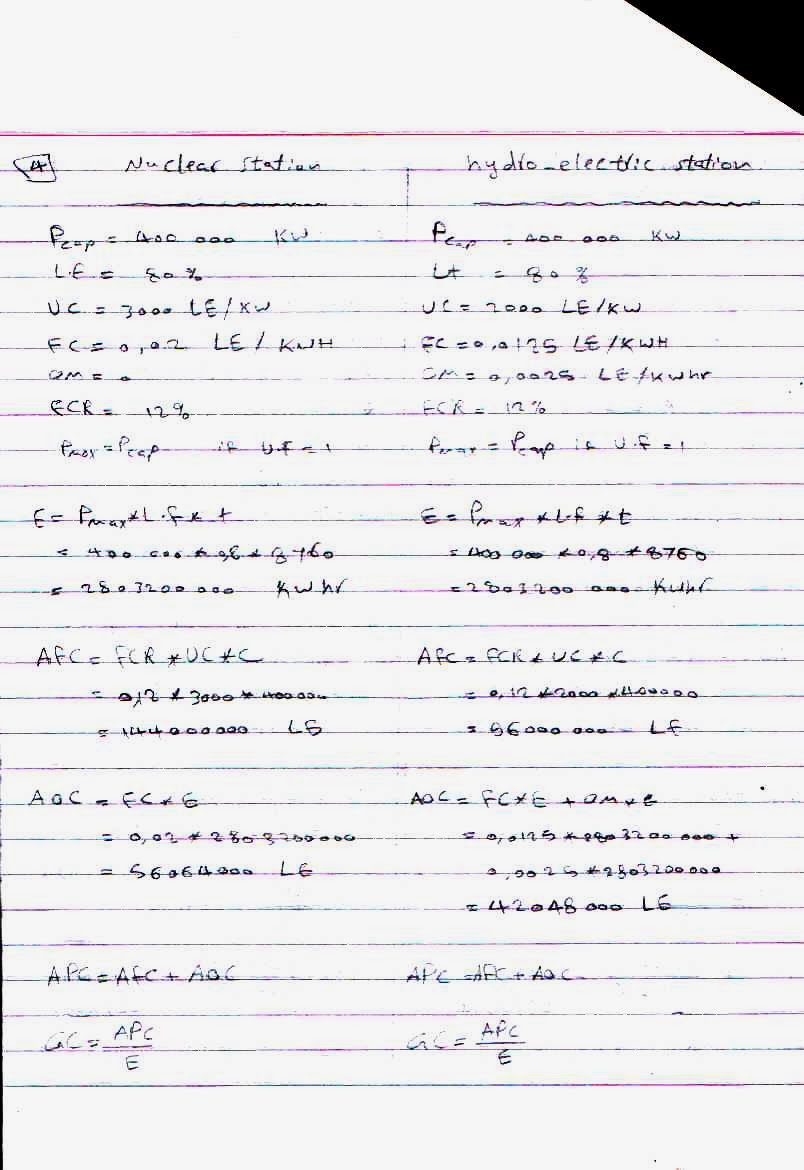 4
Nuclear Station
Pcap = 400 000 KW
L.F = 80 %
UC = 3000 LE/KW
FC = 0,02 LE / KWH
OM = 0
FCR = 12%
Pmax = Pcap if U.F = 1
E = Pmax * L.f * t
= 400 000 * 0,8 * 8760
= 2803200 000 KWhr
AFC = FCR * UC * C
= 0,12 * 3000 * 400000
= 144000000 LE
AOC = FC * E
= 0,02 * 2803200000
= 56064000 LE
APC = AFC + AOC
GC = APC
E
hydro-electric station
Pcap = 400 000 KW
Lf = 80 %
UC = 2000 LE/KW
FC = 0,0125 LE/KWH
OM = 0,0025 LE/KWhr
FCR = 12%
Pmax = Pcap if U.F = 1
E = Pmax * L.f * t
= 400 000 * 0,8 * 8760
= 2803200 000 KWhr
AFC = FCR * UC * C
= 0,12 * 2000 * 400000
= 96000 000 LE
AOC = FC * E + OM * E
= 0,0125 * 2803200 000 +
0,0025 * 2803200000
= 42048 000 LE
APC = AFC + AOC
GC = APC
E